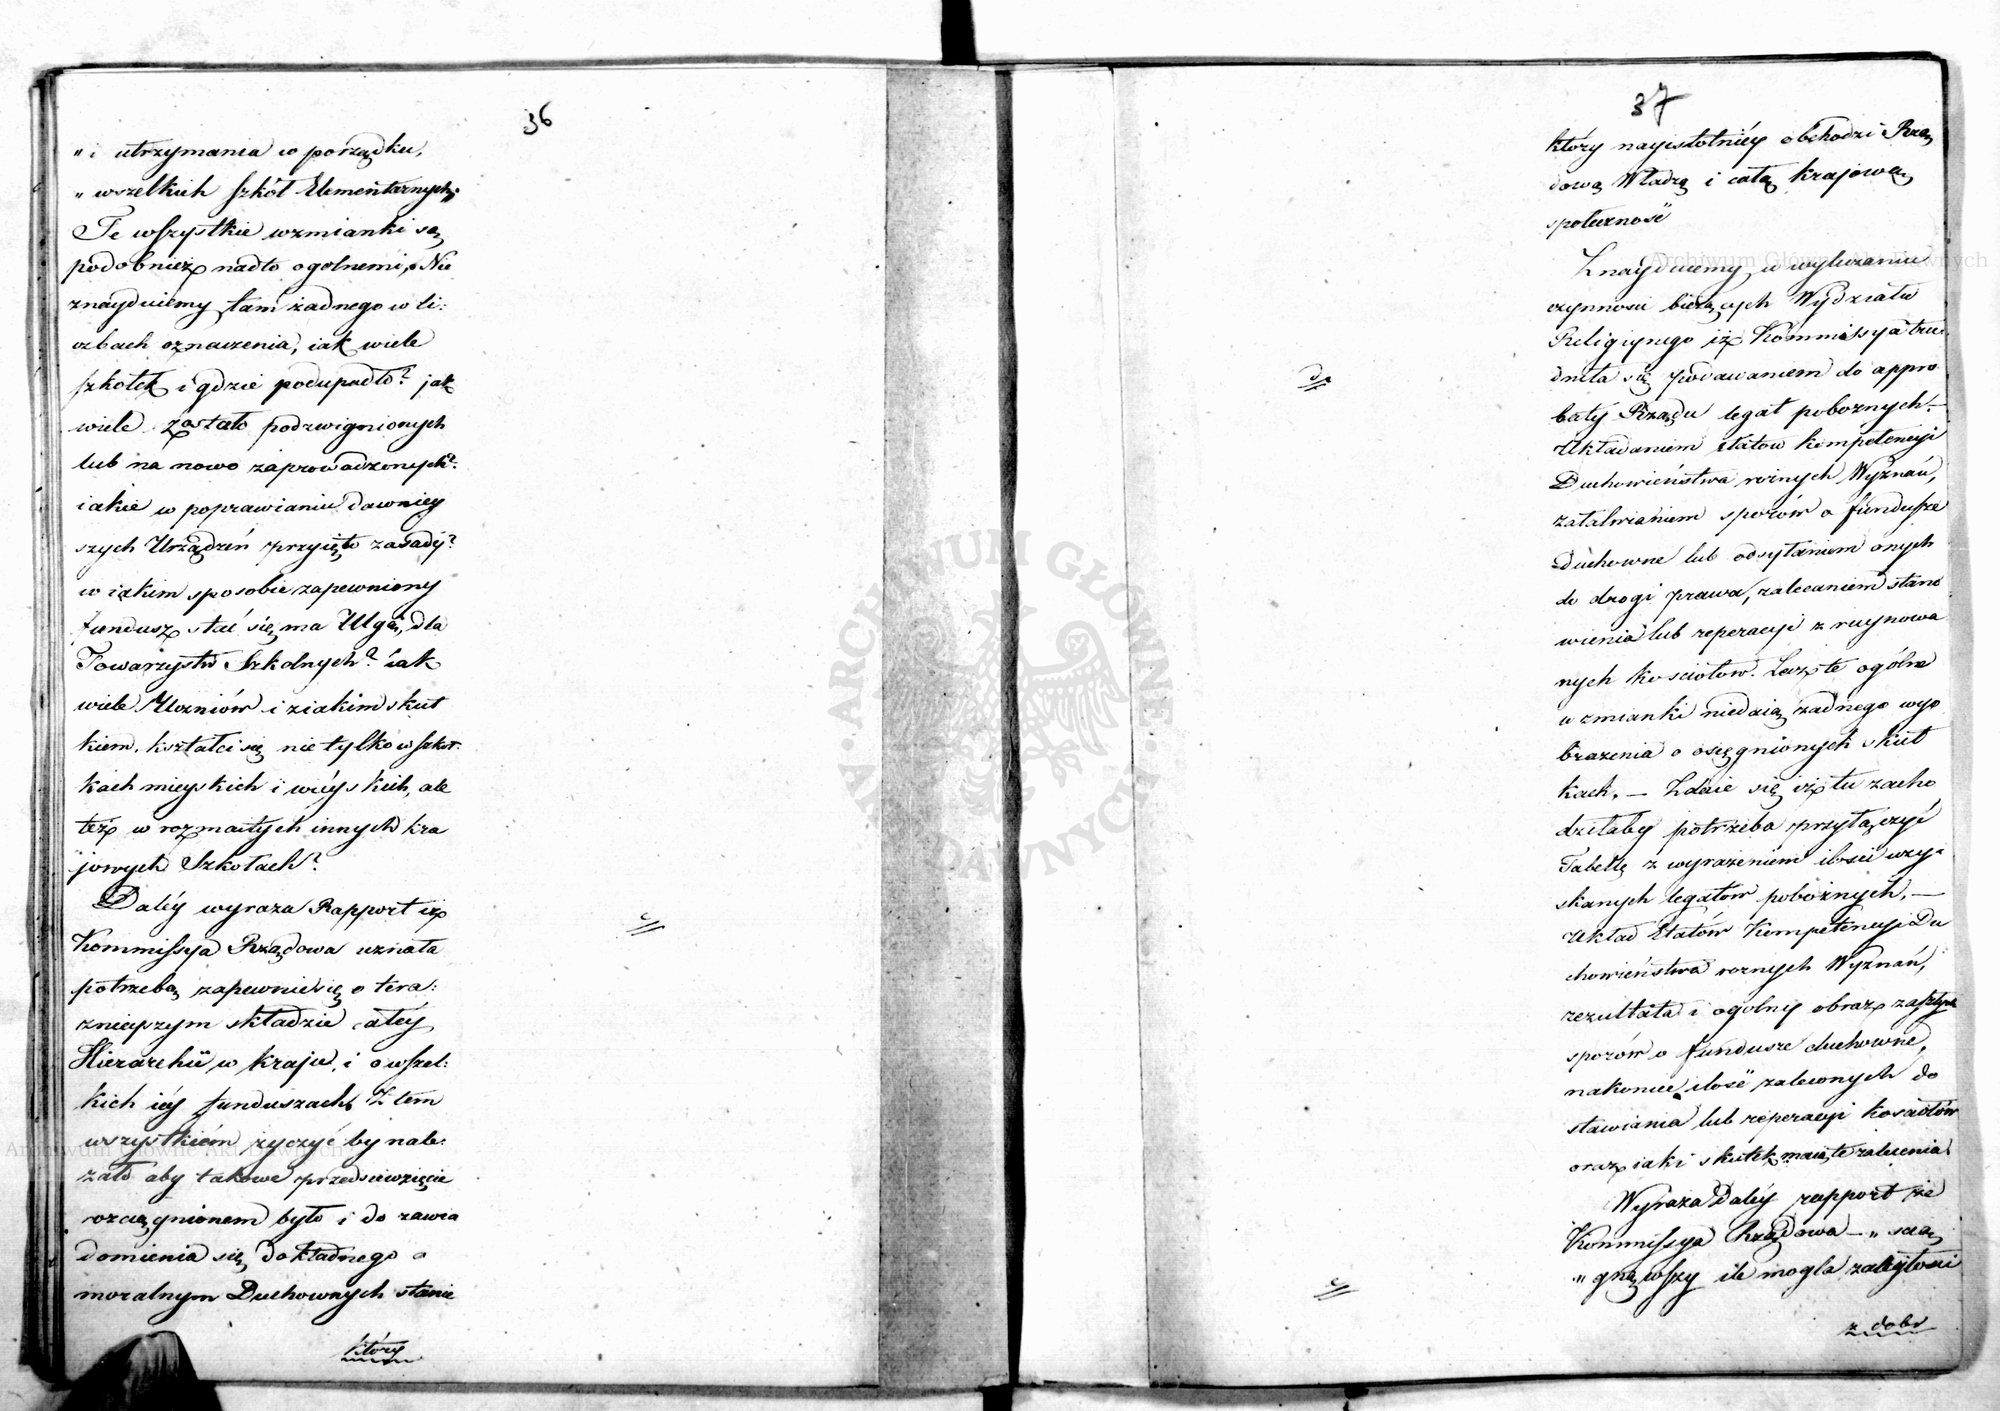 36
„ i utrzymania w porządku,
„ wszelkich szkół Elementarnych„
Te wszystkie wzmianki są
podobnież nadto ogolnemi, Nie
znayduiemy tam żadnego w li:
czbach oznaczenia, iak wiele
szkołek i gdzie podupadło? jak
wiele zostało podzwignionych
lub na nowo zaprowadzonych?
iakie w poprawianiu dawniey
szych Urządzeń przyięto zasady?
w iakim sposobie zapewniony
fundusz stać się ma Ulgą, dla
Towarzystw Szkolnych? iak
wiele Uczniów i z iakim skut
kiem, kształci się nie tylko w szkoł:
kach mieyskich i wieyskich, ale
też w rozmaitych innych kra
jowych Szkołach?
Daléy wyraza Rapport iż
Kommissya Rządowa uznała
potrzebą zapewnić się o tera:
znieyszym składzie całéy
Hierarchii w kraju, i o wszel:
kich iéy funduszach. Z tem
wszystkiém życzyć by nale:
żało aby takowe przedsiewzięcie
rozciągnionem było i do zawia
domienia się dokładnego o
moralnym Duchownych stanie
który
c//
37
który nayistotniéy obchodzi Rzą
dową Władzę i całą krajową
społeczność
Znayduiemy w wyliczaniu
czynności bieżących Wydziału
Religiynego iż Kommissya tru:
dniła się podawaniem do appro
baty Rządu legat pobożnych. —
Układaniem etatow kompetencyi
Duchowieństwa roznych Wyznań,
załatwianiem sporów o fundusze
Duchowne lub odsyłaniem onych
do drogi prawa, zalecaniem stano
wienia lub reperacyi z ruynowa
nych kosciołow. Lecz te ogólne
wzmianki niedaią żadnego wyo
brażenia o osiągnionych skut
kach. — Zdaie się iż tu zacho
dziłaby potrzeba przyłączyć
Tabellę z wyrażeniem ilosci uzy:
skanych legatow pobożnych, —
Układ Etatów Kompetencyi Du
chowieństwa roznych Wyznań,
rezultata i ogolny obraz zaszłych
sporów o fundusze duchowne,
nakoniec ilość zaleconych do
stawiania lub reperacyi kosciołów
oraz iaki skutek maią te zalecenia
Wyraza Daléy rapport że
Kommissya Rządowa — „ scią
„ gnąwszy ile mogła zaległosci
z dobr
d//
e//